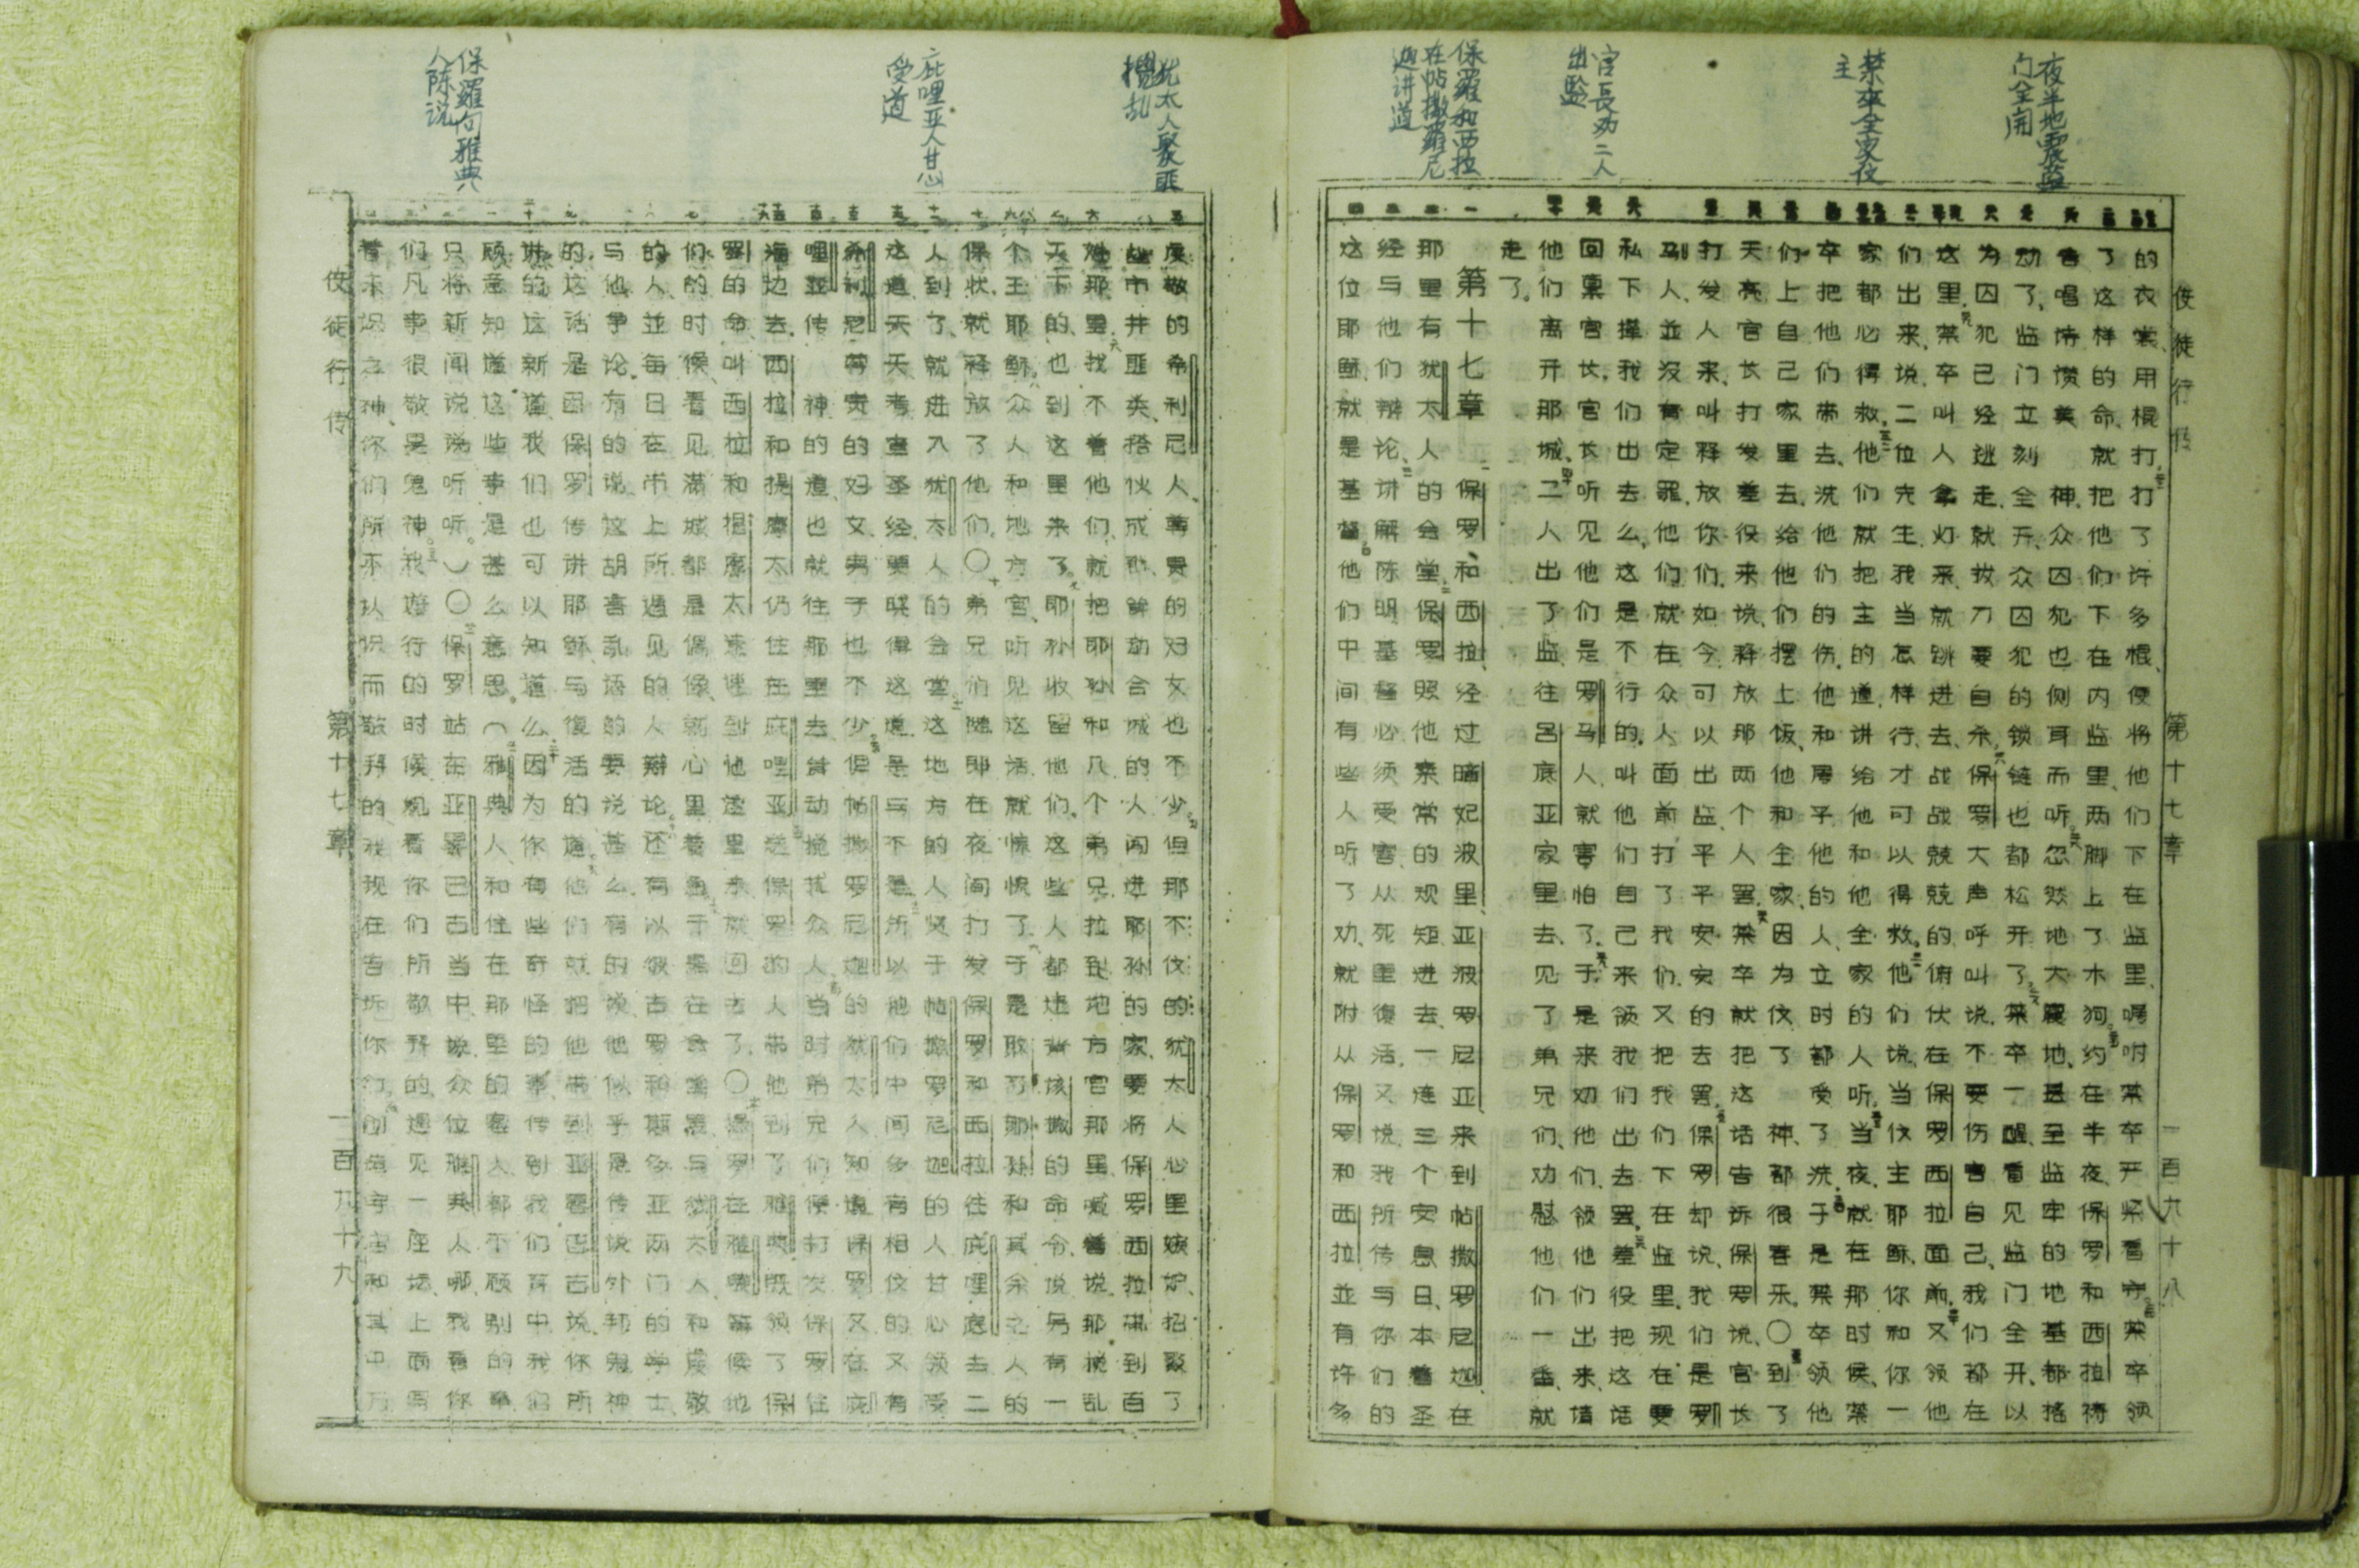 夜半地震监
门全開
禁卒全家伩
主
官長劝二人
出監
保羅和西拉
在帖撒羅尼
迦讲道
使徒行传 第十七章 一百九十八
的衣裳、用棍打、打了许多棍、便将他们下在监里、嘱咐禁卒严紧看守、禁卒领
了这样的命、就把他们下在内监里、两脚上了木狗、约在半夜、保罗和西拉祷
告唱诗讃美 神、众囚犯也侧耳而听、忽然地大震地、甚至监牢的地基都摇
动了、监门立刻全开、众囚囚犯的锁链也都松开了、禁卒一醒、看见监门全开、以
为囚犯已经逃走、就拔刀要自杀、保罗大声呼叫说、不要伤害自己、我们都在
这里、禁卒叫人拿灯来、就跳进去、战战兢兢的俯伏在保罗西拉面前、又领他
们出来、说、二位先生、我当怎样行、才可以得救、他们说、当伩主耶稣、你和你一
家都必得救、他们就把主的道、讲给他和他全家的人听、当夜就在那时候、禁
卒把他们带去、洗他们的伤、他和属乎他的人、立时都受了洗、于是禁卒领他
们上自己家里去、给他们摆上饭、他和全家、因为伩了 神、都很喜乐。〇到了
天亮、官长打发差役来说、释放那两个人罢、禁卒就把这话告诉保罗说、官长
打发人来叫释放你们、如今可以出监、平平安安的去罢、保罗却说、我们是罗
马人、並没有定罪、他们就在众人面前打了我们、又把我们下在监里、现在要
私下撵我们出去么、这是不行的、叫他们自己来领我们出去罢、差役把这话
回禀官长、官长听见他们是罗马人、就害怕了、于是来劝他们、领他们出来、请
他们离开那城、二人出了监、往吕底亚家里去、见了弟兄们、劝慰他们一番、就
走了。
第十七章 一 保罗、和西拉、经过暗妃波里、亚波罗尼亚、来到帖撒罗尼迦、在
那里有犹太人的会堂、保罗照他素常的规矩进去、一连三个安息日、本着圣
经与他们辩论、讲解陈明基督必须受害、从死里復活、又说、我所传与你们的
这位耶稣、就是基督、他们中间有些人听了劝、就附从保罗和西拉、並有许多
犹太人聚匪
攪乱
庇哩亚人甘心
受道
保羅向雅典
人陈说
虔敬的希利尼人、尊贵的妇女也不少、但那不伩的犹太人心里嫉妒、招聚了
些市井匪类、搭伙成群、耸动合城的人闯进耶孙的家、要将保罗西拉带到百
姓那里、找不着他们、就把耶孙和几个弟兄、拉到地方官那里、喊着说、那搅乱
天下的、也到这里来了、耶孙收留他们、这些人都违背该撒的命令、说、另有一
个王耶稣、众人和地方官、听见这话、就惊慌了、于是取了耶孙和其余之人的
保状、就释放了他们。〇弟兄们随即在夜间打发保罗和西拉往庇哩底去、二
人到了、就进入犹太人的会堂、这地方的人贤于帖撒罗尼迦的人、甘心领受
这道、天天考查圣经、要晓得这道、是与不是、所以他们中间多有相伩的、又有
希利尼尊贵的妇女、男子也不少、但帖撒罗尼迦的犹太人知道保罗又在庇
哩亚传 神的道、也就往那里去、耸动搅扰众人、当时弟兄们便打发保罗往
海边去、西拉和提摩太仍住在庇哩亚、送保罗的人带他到了雅典、既领了保
罗的命、叫西拉和提摩太速速到他这里来、就回去了、〇保罗在雅典等候他
们的时候、看见满城都是偶像、就心里着急、于是在会堂里与犹太人和虔敬
的人、並每日在市上所遇见的人辩论、还有以彼古罗和斯多亚两门的学士、
与他争论、有的说、这胡言乱语的要说甚么、有的说、他似乎是传说外邦鬼神
的、这话是因保罗传讲耶稣与復活的道、他们就把他带到亚略巴古、说、你所
讲的这新道、我们也可以知道么、因为你有些奇怪的事、传到我们耳中、我们
愿意知道这些事是甚么意思。(雅典人和住在那里的客人、都不顾别的事、
只将新闻说说听听。)〇保罗站在亚略巴古当中、说、众位雅典人哪、我看你
们凡事很敬畏鬼神、我遊行的时候、观看你们所敬拜的、遇见一座坛、上面写
着未识之神、你们所不认识而敬拜的、我现在告诉你们、创造宇宙和其中万
使徒行传 第十七章 一百九十九